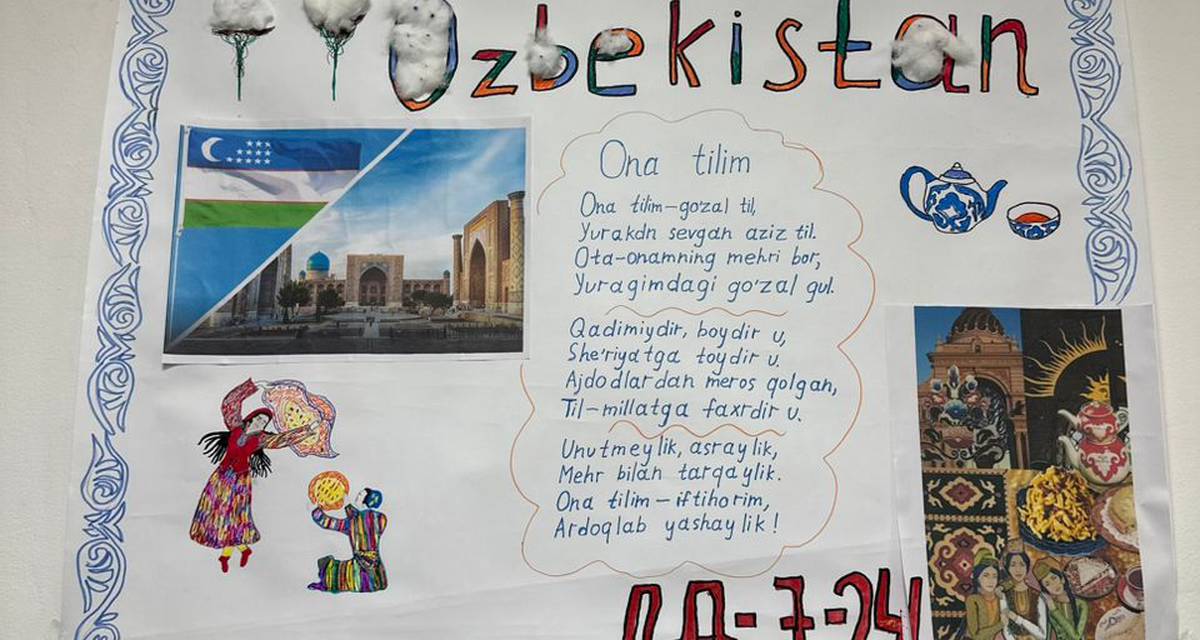 Uzbekistan
Ona tilim
Ona tilim-go'zal til,
Yurakdn sevgan aziz til.
Ota-onamning mehri bor,
Yuragimdagi go'zal gul.
Qadimiydir, boydir u,
She'riyatga toydir u.
Ajdodlardan meros qolgan,
Til-millatga faxrdir u.
Unutmeylik, asraylik,
Mehr bilan tarqaylik.
Ona tilim-iftihorim,
Ardoqlab yashaylik!
-7-24